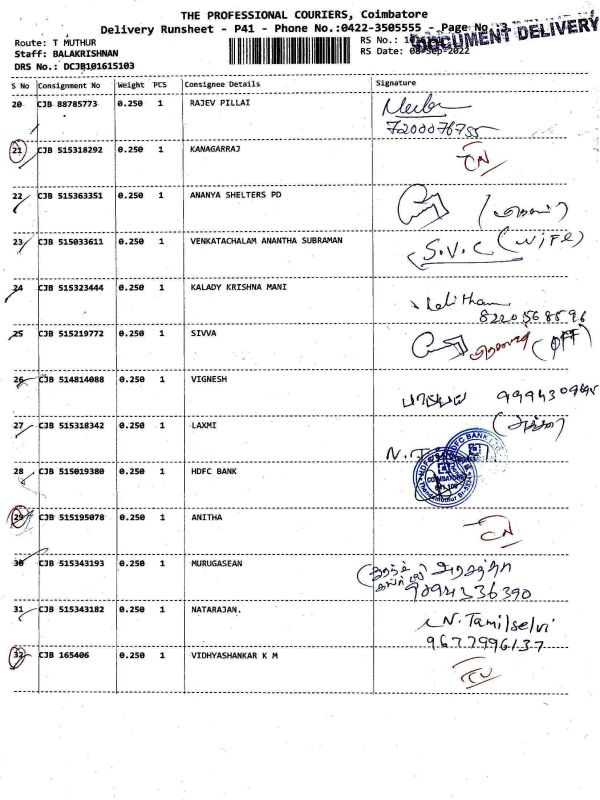 THE PROFESSIONAL COURIERS, Coimbatore
Delivery Runsheet - P41 - Phone No.:0422-3505555 - Page No. 3
DOCUMENT DELIVERY
Route: T MUTHUR
RS No.:
Staff: BALAKRISHNAN
RS Date: 08-Sep-2022
DRS No.: DCJB101615103
S No Consignment No Weight PCS Consignee Details Signature
20 CJB 88785773 0.250 1 RAJEV PILLAI
7200076755
21 CJB 515318292 0.250 1 KANAGARRAJ CN
22 CJB 515363351 0.250 1 ANANYA SHELTERS PD
23 CJB 515033611 0.250 1 VENKATACHALAM ANANTHA SUBRAMAN S.V.C (WIFE)
24 CJB 515323444 0.250 1 KALADY KRISHNA MANI Lalitham
8220568596
25 CJB 515219772 0.250 1 SIVVA (OFF)
26 CJB 514814088 0.250 1 VIGNESH
27 CJB 515318342 0.250 1 LAXMI
28 CJB 515019380 0.250 1 HDFC BANK
HDFC BANK
COIMBATORE
29 CJB 515195078 0.250 1 ANITHA CN
30 CJB 515343193 0.250 1 MURUGASEAN
9894336390
31 CJB 515343182 0.250 1 NATARAJAN. N. Tamilselvi
9677996137
32 CJB 165406 0.250 1 VIDHYASHANKAR K M CN